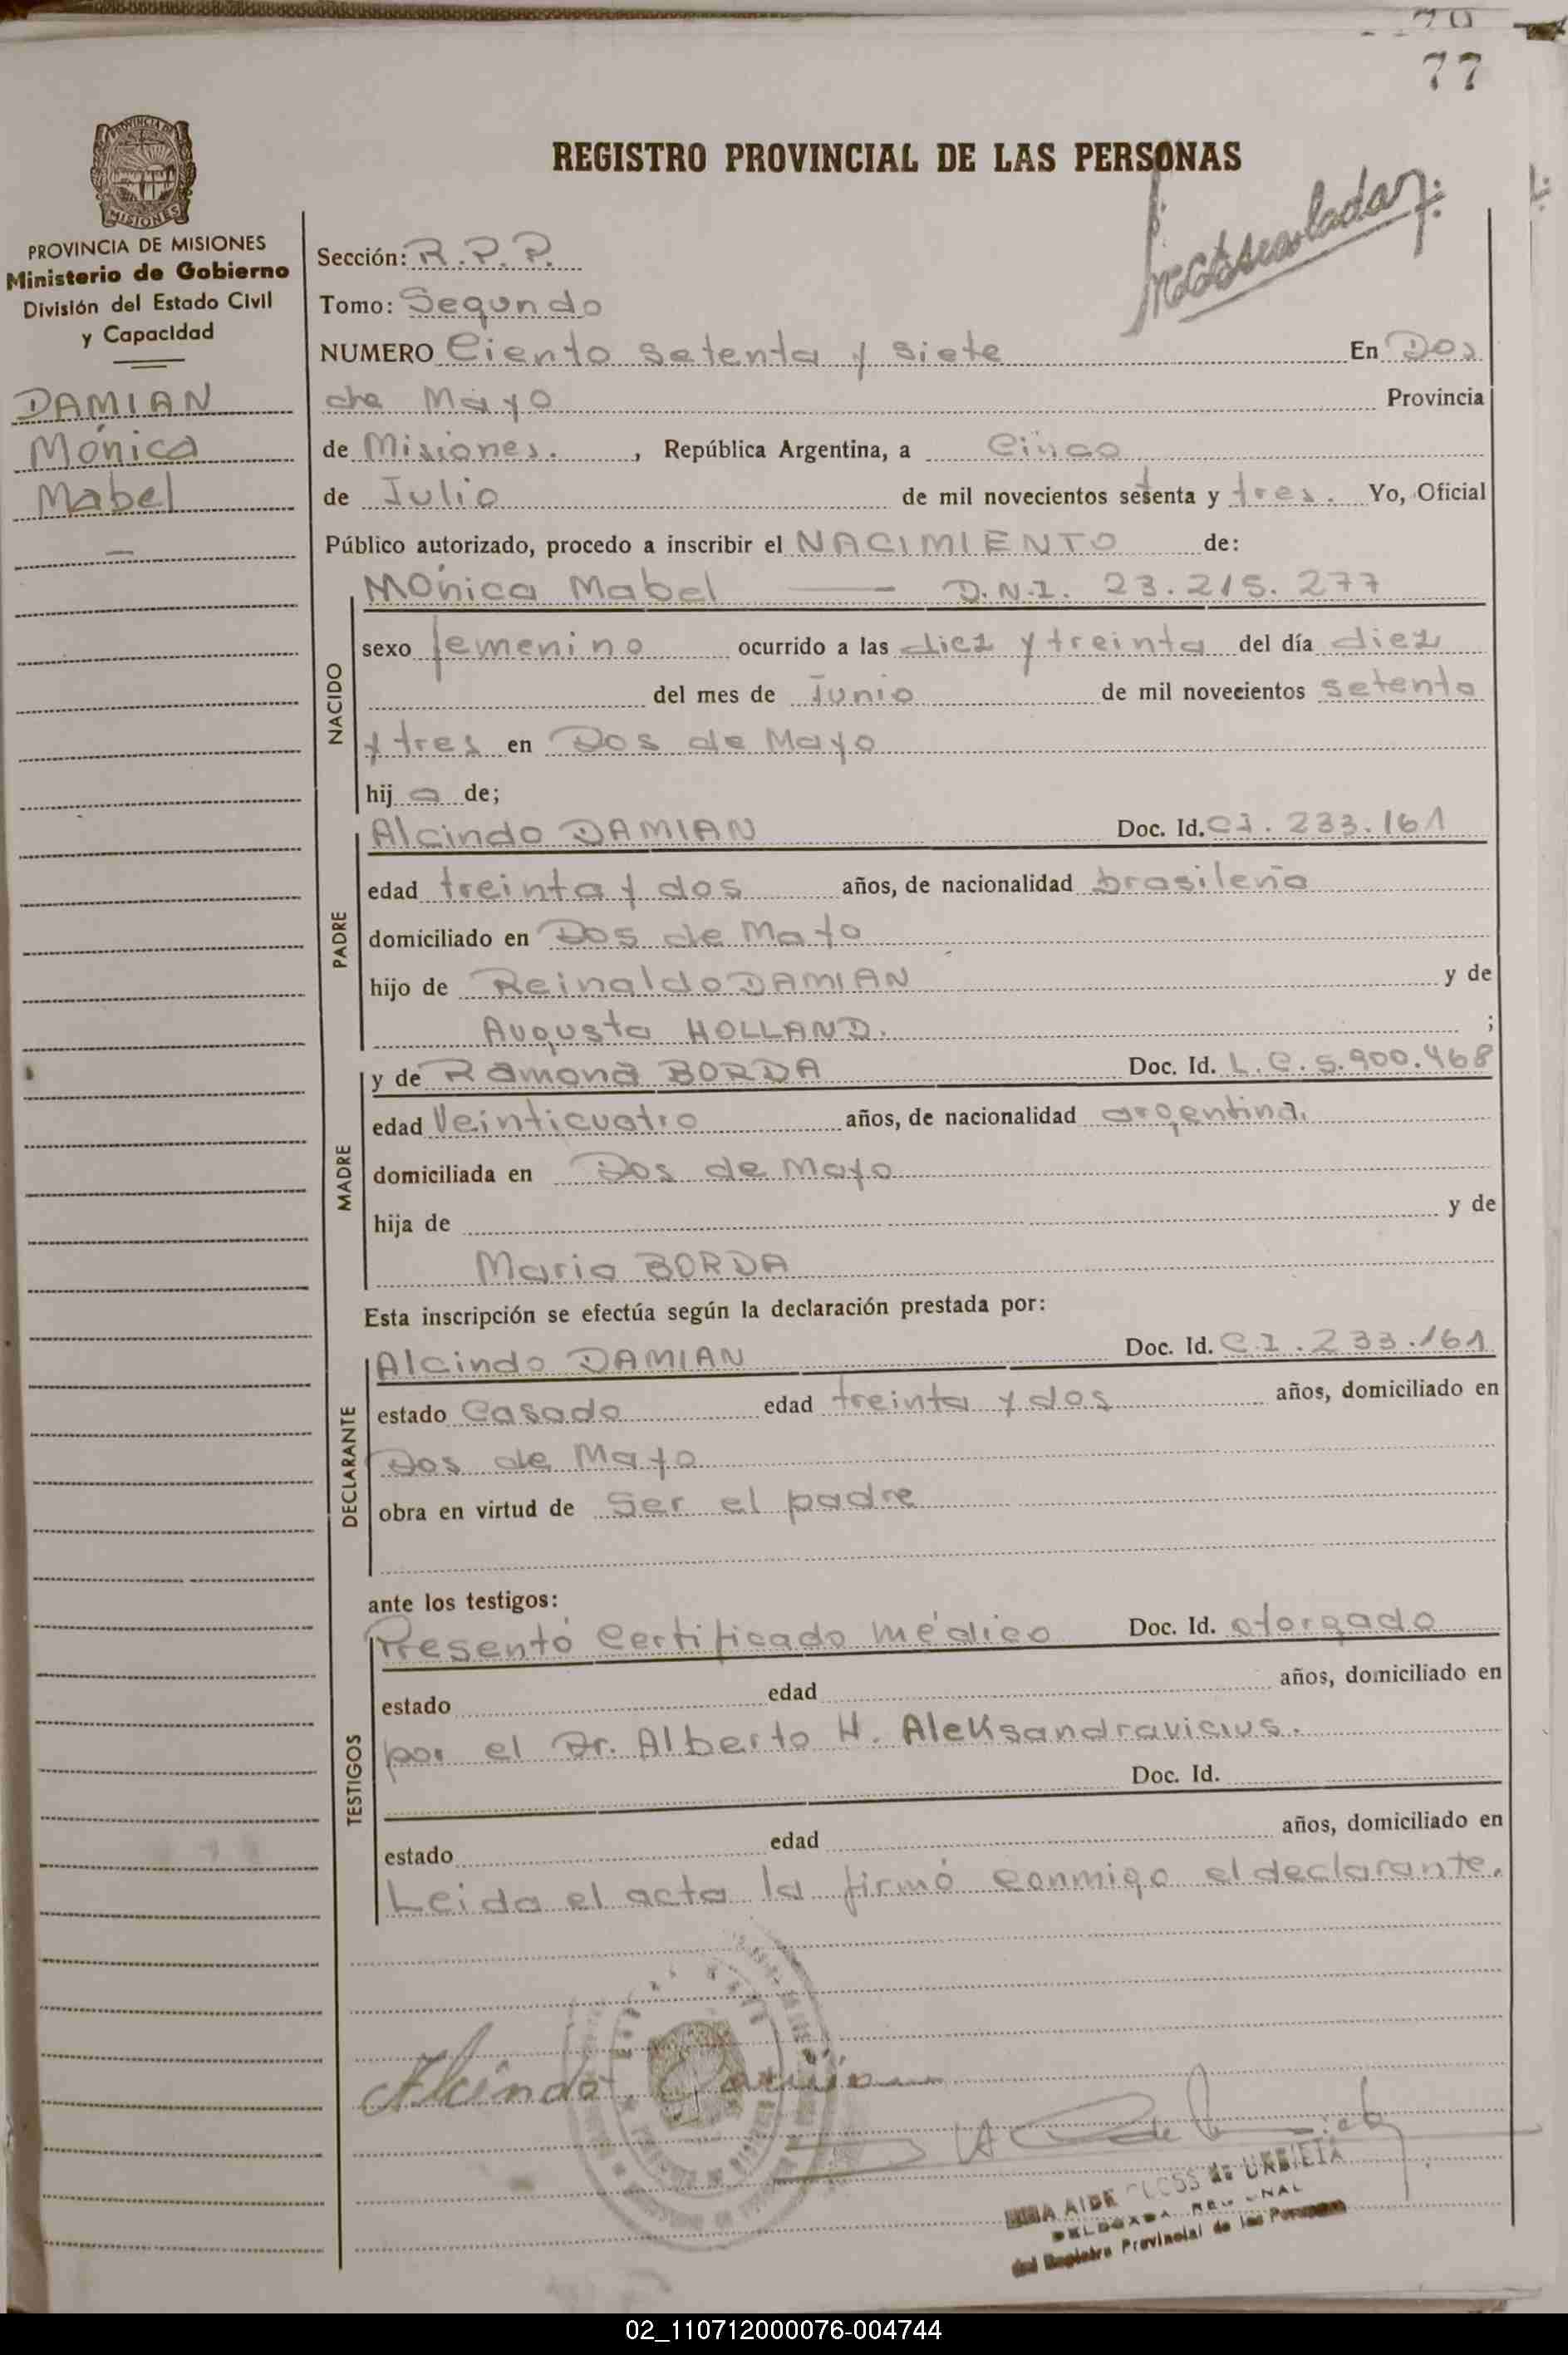 77
REGISTRO PROVINCIAL DE LAS PERSONAS
PROVINCIA DE MISIONES
Ministerio de Gobierno
División del Estado Civil
y Capacidad
DAMIAN
Mónica
Mabel
Sección: R.P.P.
Tomo: Segundo
NUMERO Ciento setenta y siete En Dos
de Mayo Provincia
de Misiones. , República Argentina, a Cinco
de Julio de mil novecientos setenta y tres. Yo, Oficial
Público autorizado, procedo a inscribir el NACIMIENTO de:
NACIDO
Mónica Mabel — D.N.I. 23.215.277
sexo femenino ocurrido a las diez y treinta del día diez
del mes de Junio de mil novecientos setenta
y tres en Dos de Mayo
hij a de;
PADRE
Alcindo DAMIAN Doc. Id. CI. 233.161
edad treinta y dos años, de nacionalidad brasileña
domiciliado en Dos de Mayo
hijo de Reinaldo DAMIAN y de
Augusta HOLLAND. ;
MADRE
y de Ramona BORDA Doc. Id. L.C. 5.900.468
edad Veinticuatro años, de nacionalidad argentina.
domiciliada en Dos de Mayo
hija de y de
Maria BORDA
Esta inscripción se efectúa según la declaración prestada por:
DECLARANTE
Alcindo DAMIAN Doc. Id. C.I. 233.161
estado Casado edad treinta y dos años, domiciliado en
Dos de Mayo
obra en virtud de Ser el padre
ante los testigos:
TESTIGOS
Presentó Certificado médico Doc. Id. otorgado
estado edad años, domiciliado en
por el Dr. Alberto H. Aleksandravicius.
Doc. Id.
estado edad años, domiciliado en
Leida el acta la firmó conmigo el declarante.
Alcindo Damian
AIDE de URBIETA
DELEGADA REGIONAL
del Registro Provincial de las Personas
02_110712000076-004744